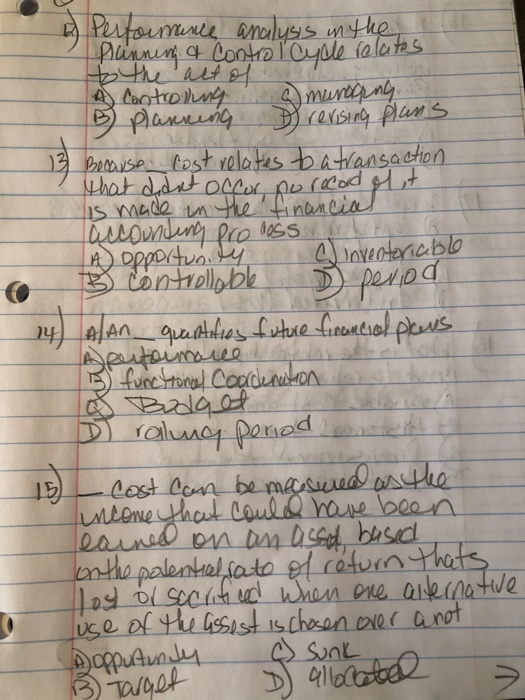 12) Performance analysis in the
Planning & Control Cycle relates
to the act of
A) Controlling C) managing
B) planning D) revising plans
13) Because _ cost relates to a transaction
that didnt occur, no record of it
is made in the financial
accounting process
A) opportunity C) inventoriable
B) controllable D) period
14) A/An _ quantifies future financial plans
A) performance
B) functional Coordination
C) Budget
D) rolling period
15) _ Cost can be measured as the
income that could have been
earned on an asset, based
on the potential rate of return thats
lost or sacrificed when one alternative
use of the assest is chosen over anot
A) opportunity C) Sunk
B) Target D) allocated